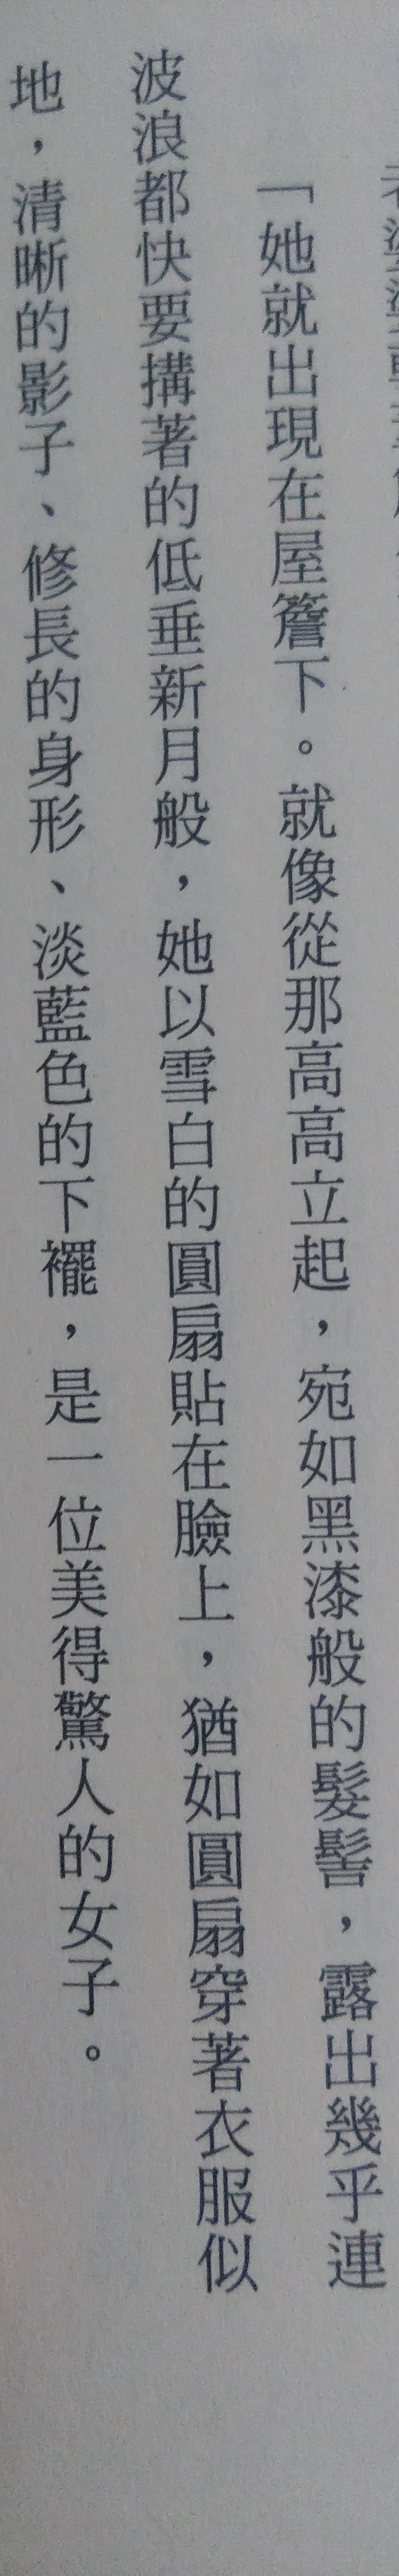 「她就出現在屋簷下。就像從那高高立起，宛如黑漆般的髮髻，露出幾乎連
波浪都快要搆著的低垂新月般，她以雪白的圓扇貼在臉上，猶如圓扇穿著衣服似
地，清晰的影子、修長的身形、淡藍色的下襬，是一位美得驚人的女子。